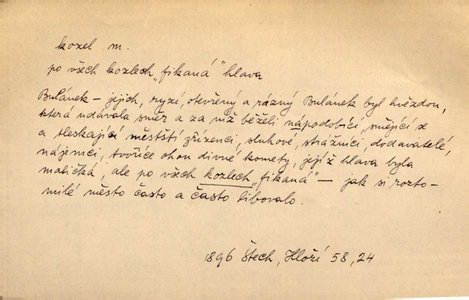 kozel m.
po všech kozlech „fikaná" hlava
Bulánek – jejich, ryzí, otevřený a rázný Bulánek byl hvězdou,
která udávala směr a za níž běželi nápodobiči, smějící se
a tleskající městští zřízenci, sluhové, strážníci, dodavatelé,
nájemci, tvoříce ohon divné komety, jejíž hlava byla
maličká, ale po všech kozlech „fikaná" – jak si rozto-
milé město často a často libovalo.
1896 Štech, Hloží 58, 24